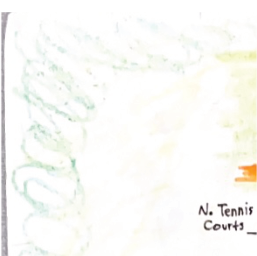 N. Tennis
Courts